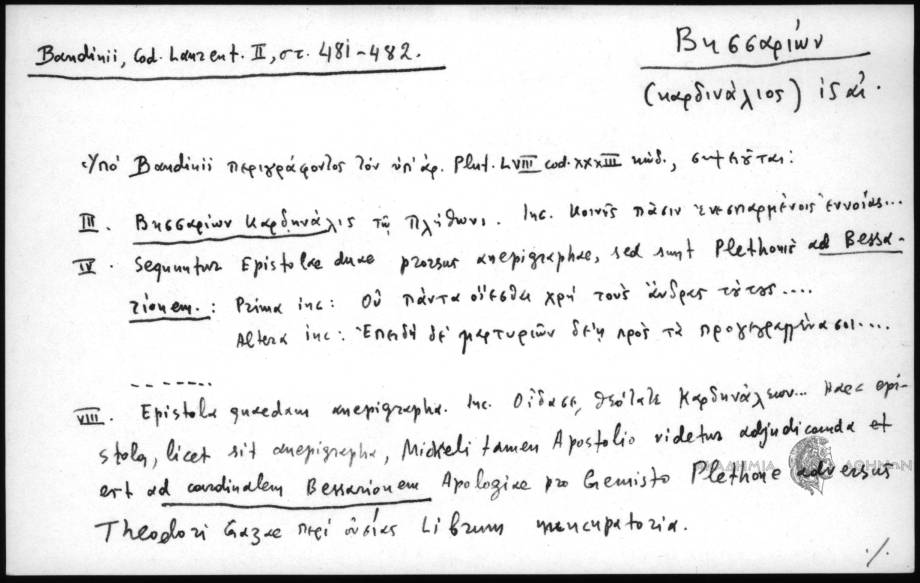 Bandinii, Cod. Laurent. II, στ. 481-482.
Βησσαρίων
(καρδινάλιος) ις αἰ.
Ὑπό Bandinii περιγράφοντος τον ὑπ' ἀρ. Plut. LVIII cod. XXXIII κώδ., σημειοῦται:
III. Βησσαρίων Καρδηνάλις τῷ Πλήθωνι. Inc. Κοινῆς πᾶσιν ἐνεσπαρμένοις ἐννοίας...
IV. Sequuntur Epistolae duae prorsus anepigraphae, sed sunt Plethonis ad Bessa-
rionem.: Prima inc: Οὐ πάντα οἴεσθαι χρή τούς ἄνδρας τούτους....
Altera inc: Ἐπειδή δέ μαρτυριῶν δέῃ πρός τά προγεγραμμένα σοι....
VIII. Epistola quaedam anepigrapha. Inc. Οἶδα σε, θειότατε Καρδηνάλεων... Haec epi-
stola, licet sit anepigrapha, Micheli tamen Apostolio videtur adjudicanda et
est ad cardinalem Bessarionem Apologiae pro Gemisto Plethone adversus
Theodori Gazae περί οὐσίας Librum nuncupatoria.
ΑΚΑΔΗΜΙΑ ΑΘΗΝΩΝ
./.